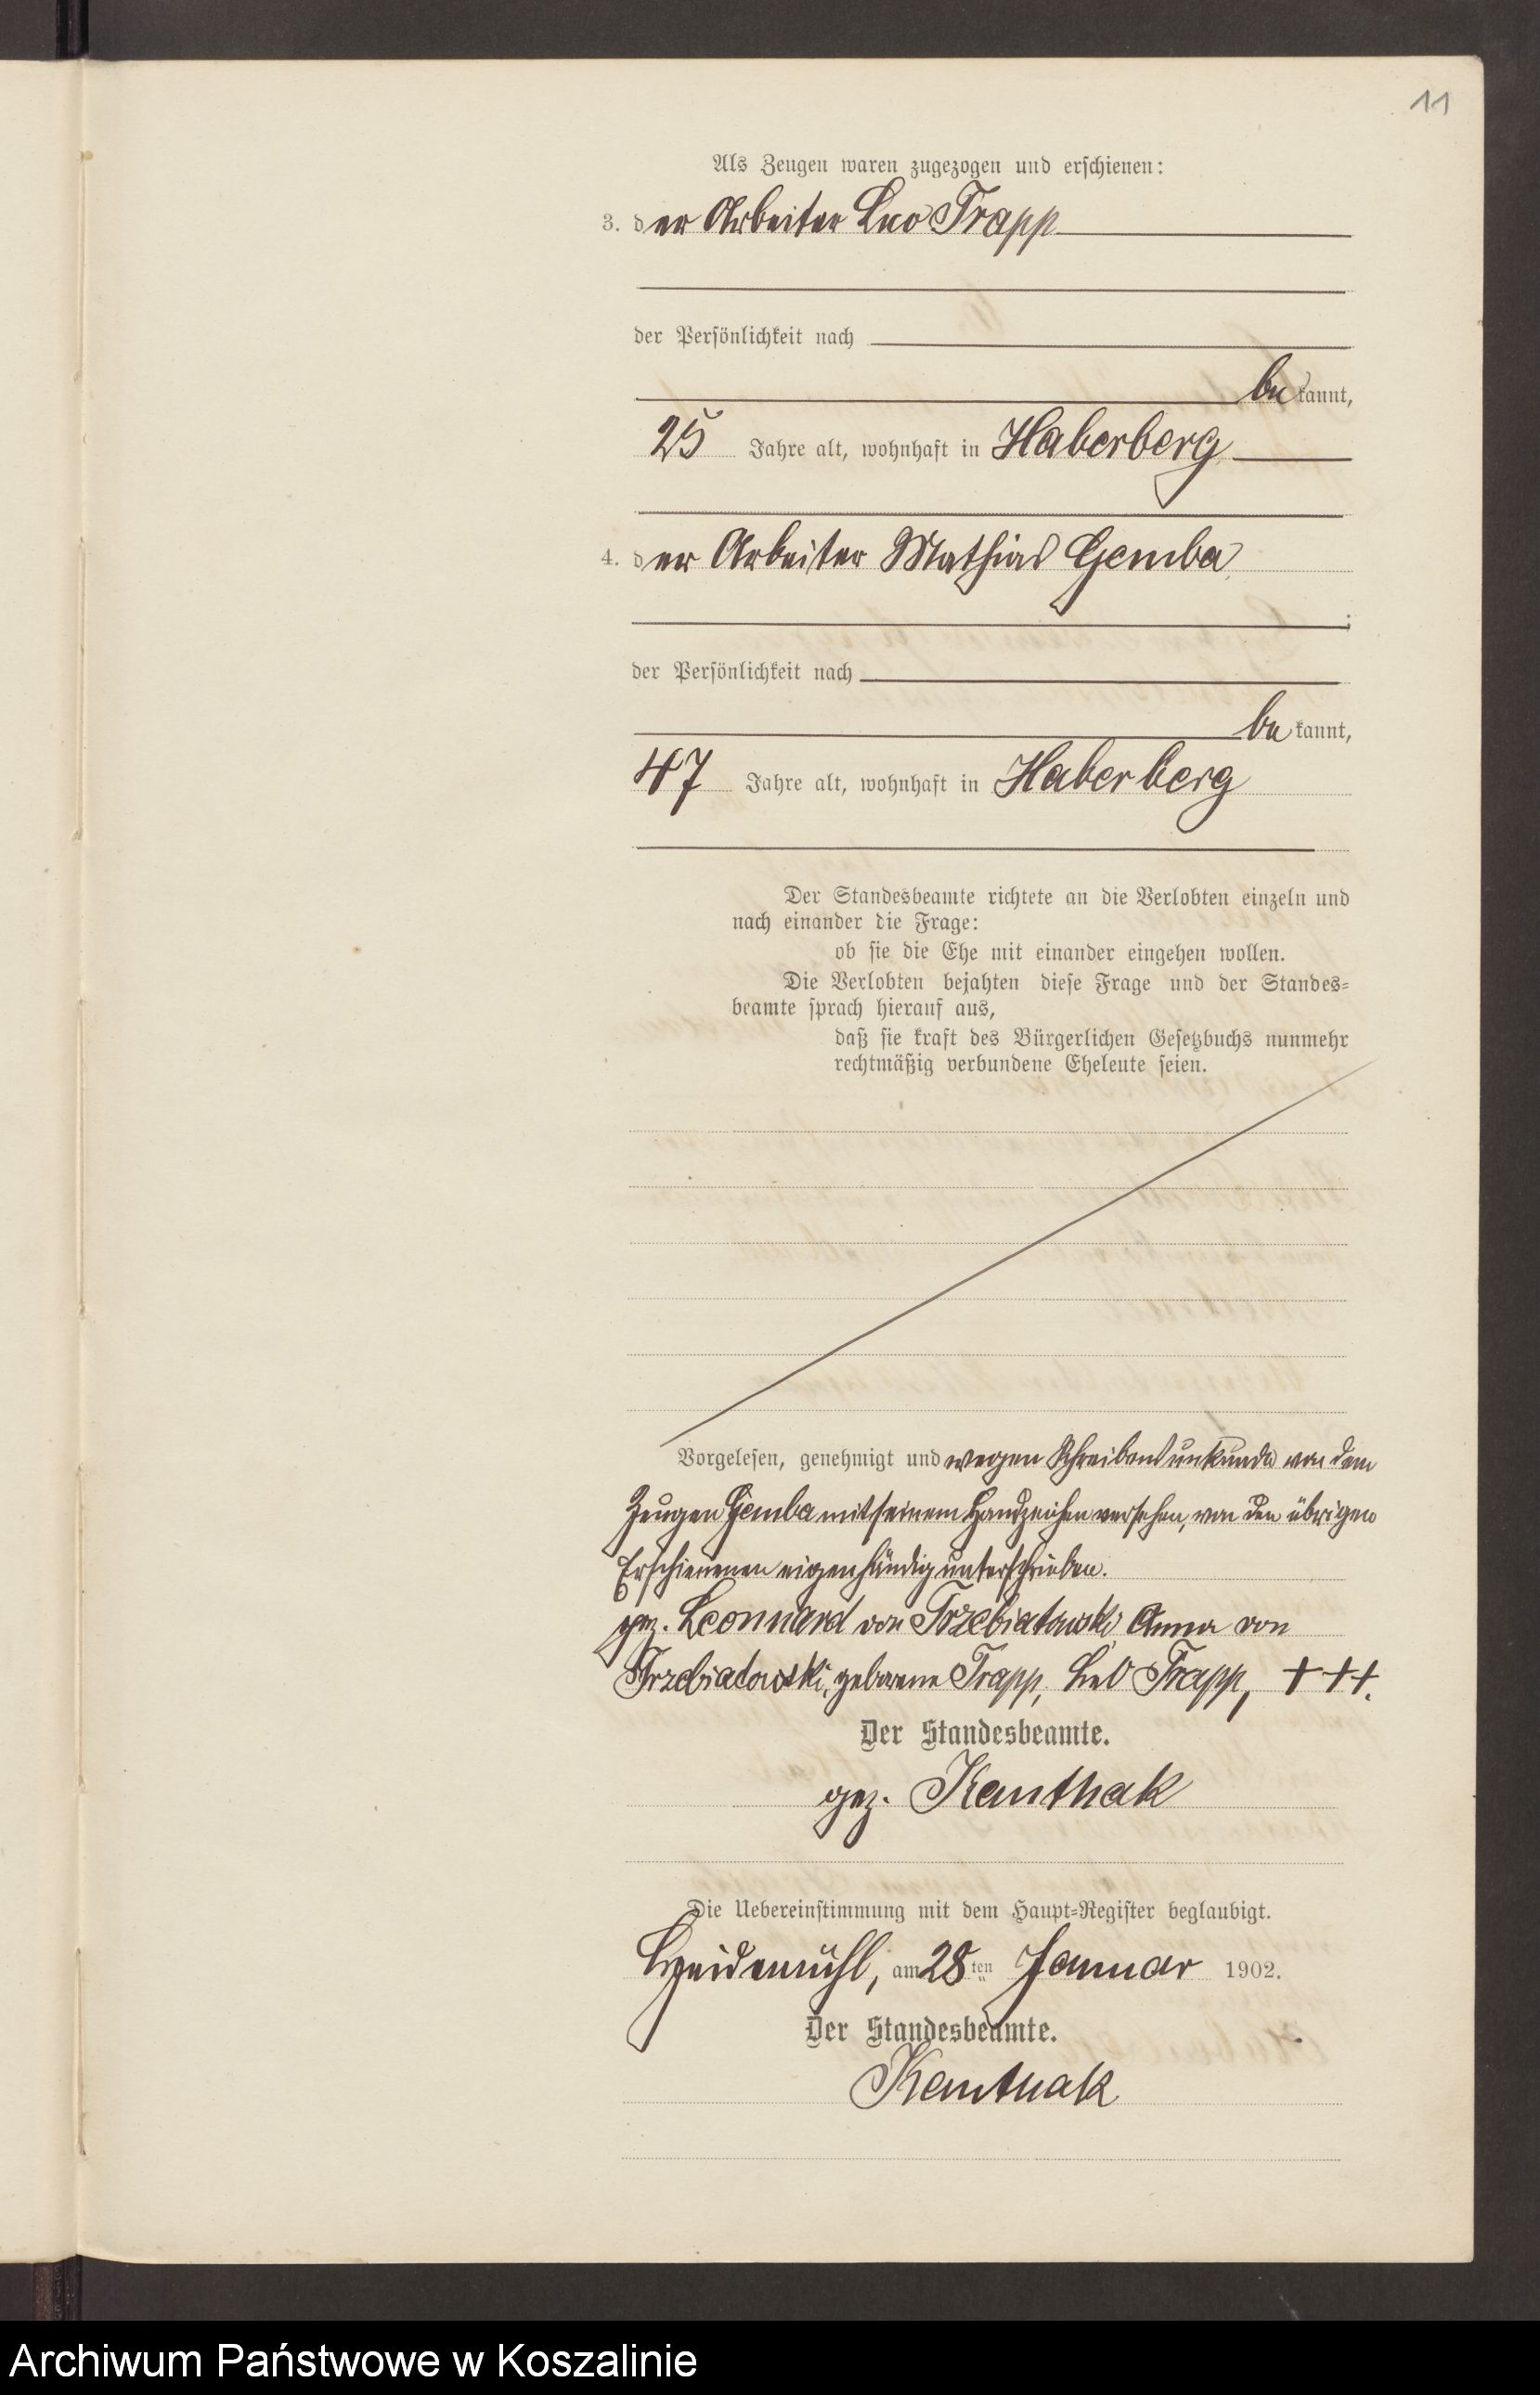 11
Als Zeugen waren zugezogen und erschienen:
3. der Arbeiter Leo Trapp
der Persönlichkeit nach
be kannt,
25 Jahre alt, wohnhaft in Haberberg
4. der Arbeiter Mathias Gemba
;
der Persönlichkeit nach
be kannt,
47 Jahre alt, wohnhaft in Haberberg
Der Standesbeamte richtete an die Verlobten einzeln und
nach einander die Frage:
ob sie die Ehe mit einander eingehen wollen.
Die Verlobten bejahten diese Frage und der Standes-
beamte sprach hierauf aus,
daß sie kraft des Bürgerlichen Gesetzbuchs nunmehr
rechtmäßig verbundene Eheleute seien.
Vorgelesen, genehmigt und wegen Schreibensunkunde von dem
Zeugen Gemba mit seinem Handzeichen versehen, von den übrigen
Erschienenen eigenhändig unterschrieben.
gez. Leonnard von Trzebiatowski Anna von
Trzebiatowski, geborene Trapp, Leo Trapp, +++.
Der Standesbeamte.
gez. Kanthak
Die Uebereinstimmung mit dem Haupt-Register beglaubigt.
Heidemühl, am 28ten Januar 1902.
Der Standesbeamte.
Kanthak
Archiwum Państwowe w Koszalinie